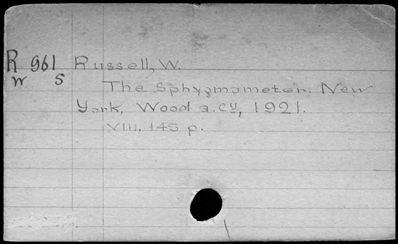 R 961 Russell, W.
W S
The Sphygmometer. New
York, Wood a. cy, 1921.
VIII, 145 p.